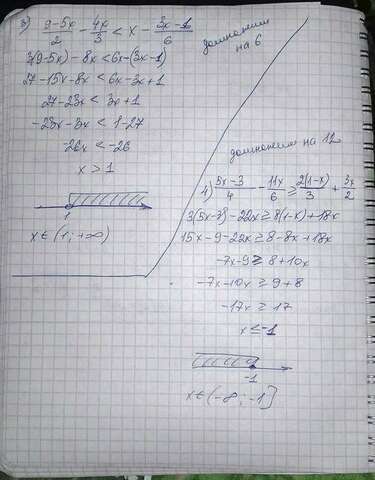 3) (9-5x)/2 - 4x/3 < x - (3x-1)/6
домножим
на 6
3(9-5x) - 8x < 6x-(3x-1)
27-15x-8x < 6x-3x+1
27-23x < 3x+1
-23x-3x < 1-27
-26x < -26
x > 1
1
x ∈ (1; +∞)
домножим на 12
4) (5x-3)/4 - 11x/6 ≥ 2(1-x)/3 + 3x/2
3(5x-3)-22x ≥ 8(1-x)+18x
15x-9-22x ≥ 8-8x+18x
-7x-9 ≥ 8+10x
-7x-10x ≥ 9+8
-17x ≥ 17
x ≤ -1
-1
x ∈ (-8; -1]